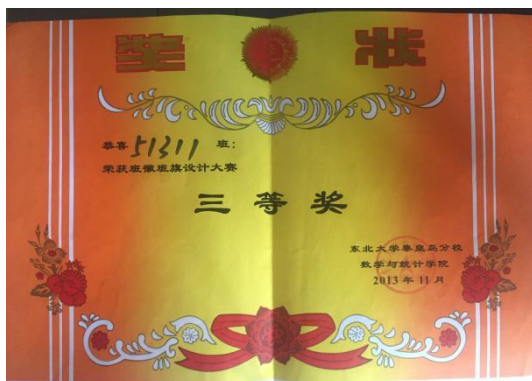 奖状
恭喜 51311 班：
荣获班徽班旗设计大赛
三等奖
东北大学秦皇岛分校
数学与统计学院
2013 年 11 月